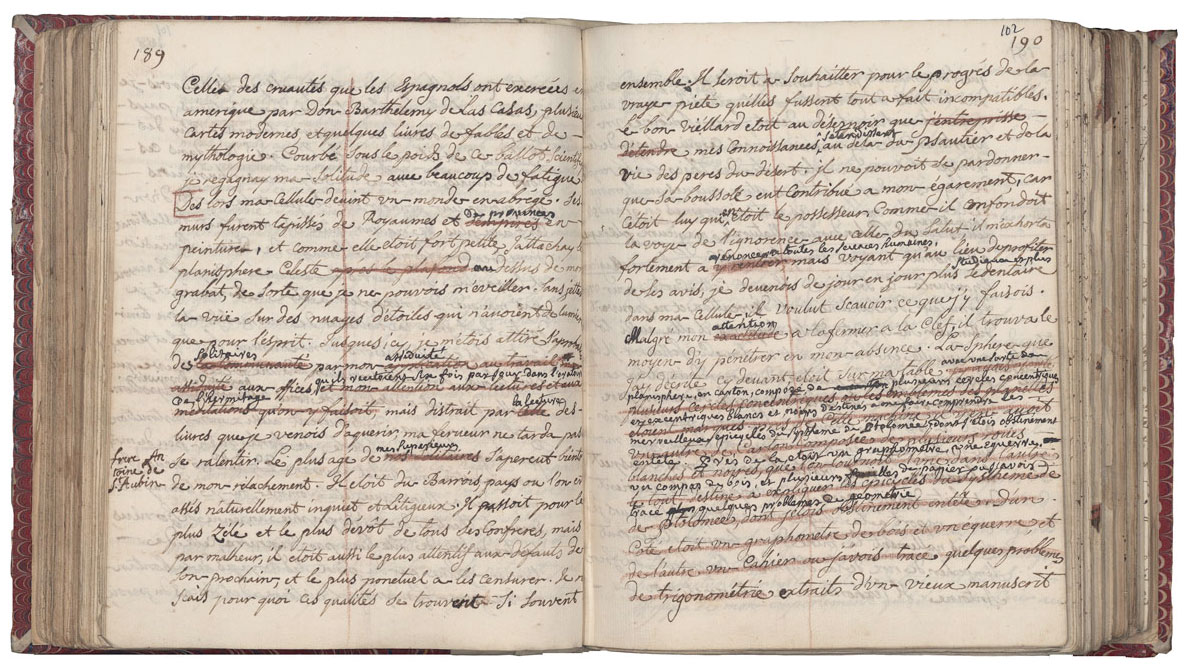 189
Celles des cruautés que les Espagnols ont exercées e
amerique par Don Barthelemy de las Casas, plusieu
cartes modernes et quelques livres de fables et de
mythologie. Courbé sous le poids de ce ballot scientif
je regagnay ma solitude avec beaucoup de fatigue
Des lors ma cellule devint un monde en abregé. Ses
murs furent tapissés de Royaumes et
de provinces
d'empires en
peinture, et comme elle etoit fort petite j'attachay le
planisphere Celeste après le plafond au dessus de mon
grabat, de sorte que je ne pouvois m'eveiller sans jetter
la vüe sur des nuages d'étoiles qui n'avoient de lumie
que pour l'esprit. Jusques, icy, je m'etois attiré l'api
solitaires
assiduité
de la communauté par mon
aux offices qu'ils recitoient six fois par jour dans l'orato
de l'hermitage
mon attention aux lectures et aux
meditations qu'on y faisoit, mais distrait par
la lecture
celle des
livres que je venois d'aquerir ma ferveur ne tarda pas
mes superieurs
se ralentir. Le plus agé de aperçut bient
frere An
toine de
St Aubin
de mon relachement. Il etoit du Barrois pays ou l'on e
assés naturellement inquiet et litigieux. Il passoit pour le
plus Zélé et le plus devot de tous ses Confreres, mais
par malheur, il etoit aussi le plus attentif aux defauts de
son prochain, et le plus ponctuel a les censurer. Je n
scais pour quoi ces qualités se trouvent si souvent
102
190
ensemble. Il seroit a souhaitter pour le progrés de la
vraye pieté qu'elles fussent tout a fait incompatibles.
Le bon vieillard etoit au desespoir que j'entreprisse
s'etendissent
d'étendre mes connoissances, au dela du psautier et de la
vie des peres du desert. il ne pouvoit se pardonner
que sa boussole eut contribué a mon égarement, car
c'etoit luy qui en etoit le possesseur. Comme il confondoit
la voye de l'ignorence avec celle du salut il m'exhorta
renoncer a toutes les sciences humaines,
fortement a mais voyant qu'au lieu de profiter
studieux et plus
de ses avis, je devenois de jour en jour plus sedentaire
dans ma Cellule il voulut scavoir ce que j'y faisois.
attention
Malgré mon a la fermer a la clef, il trouva le
moyen d'y pénétrer en mon absence. La sphere que
j'ay décrite cy devant etoit sur ma table
avec une sorte de
planisphere, en carton, composé de plusieurs cercles concentriques
plusieurs cercles concentriques
et excentriques blancs et noirs destinés a me faire comprendre les
merveilleux epicycles du systeme de Ptolomée, dont j'etois obstinement
entété. Près de la etoit un graphometre, une equerre,
blanches et noires,
un compas de bois, et plusieurs du papier ou j'avois
tracé quelques problemes de géometrie
de Ptolomée dont j'etois obstinement entété. d'un
Coté etoit un graphometre de bois et une equerre, et
de l'autre un Cahier ou j'avois tracé quelques problémes
de trigonométrie extraits d'un vieux manuscrit